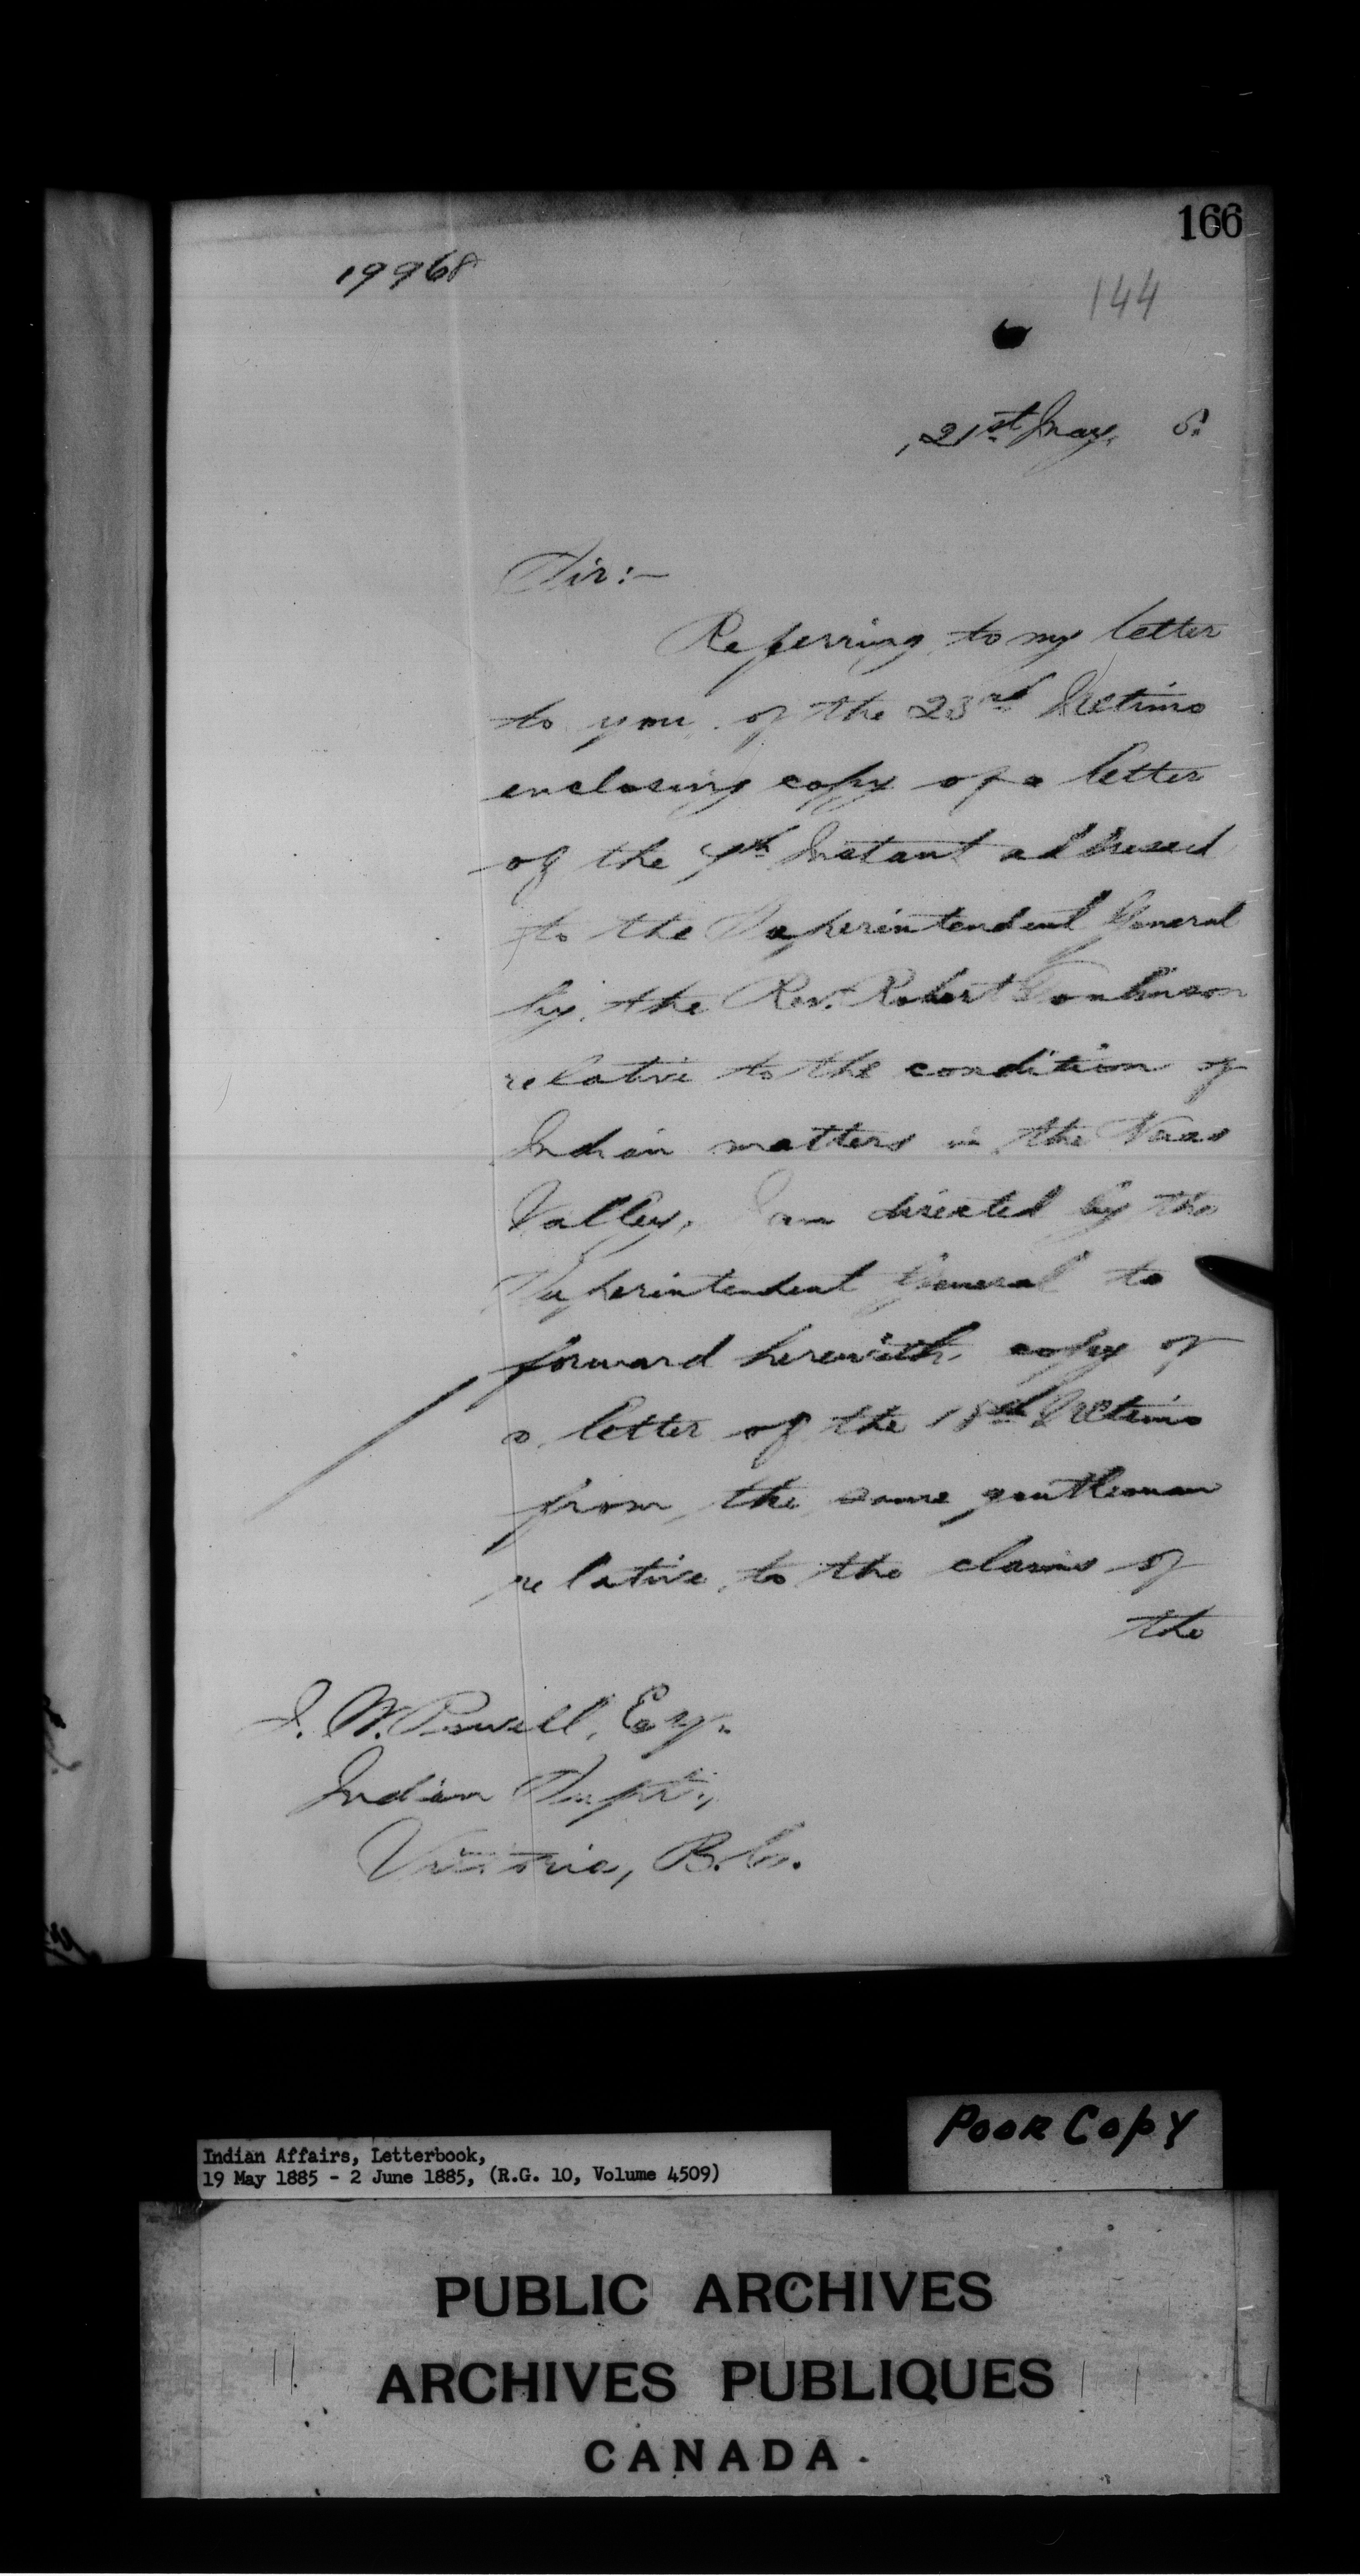 166
19968
144
21st May, 5.
Sir:—
Referring to my letter
to you of the 23rd Ultimo
enclosing copy of a letter
of the 4th Instant addressed
to the Superintendent General
by the Rev. Robert Tomlinson
relative to the condition of
Indian matters in the Naas
Valley, I am directed by the
Superintendent General to
forward herewith copy of
a letter of the 18th Ultimo
from the same gentleman
relative to the claims of
the
I. W. Powell, Esq.
Indian Supt.,
Victoria, B.C.
Poor Copy
Indian Affairs, Letterbook,
19 May 1885 - 2 June 1885, (R.G. 10, Volume 4509)
PUBLIC ARCHIVES
ARCHIVES PUBLIQUES
CANADA